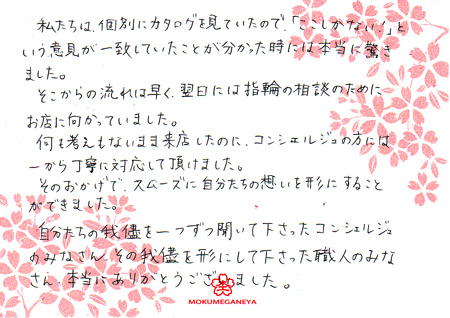 私たちは、個別にカタログを見ていたので、「ここしかない!」と
いう意見が一致していたことが分かった時には本当に驚き
ました。
そこからの流れは早く、翌日には指輪の相談のために
お店に向かっていました。
何も考えもないまま来店したのに、コンシェルジュの方には
一から丁寧に対応して頂けました。
そのおかげで、スムーズに自分たちの想いを形にすること
ができました。
自分たちの我儘を一つずつ聞いて下さったコンシェルジュ
のみなさん、その我儘を形にして下さった職人のみな
さん、本当にありがとうございました。
MOKUMEGANEYA